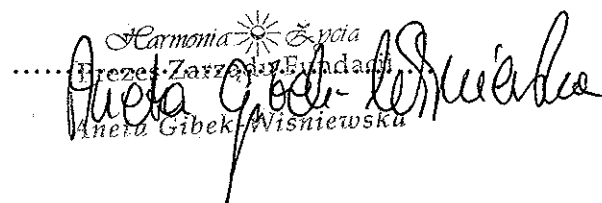 Harmonia Życia
Prezes Zarządu Fundacji
Aneta Gibek-Wiśniewska
Aneta Gibek-Wiśniewska